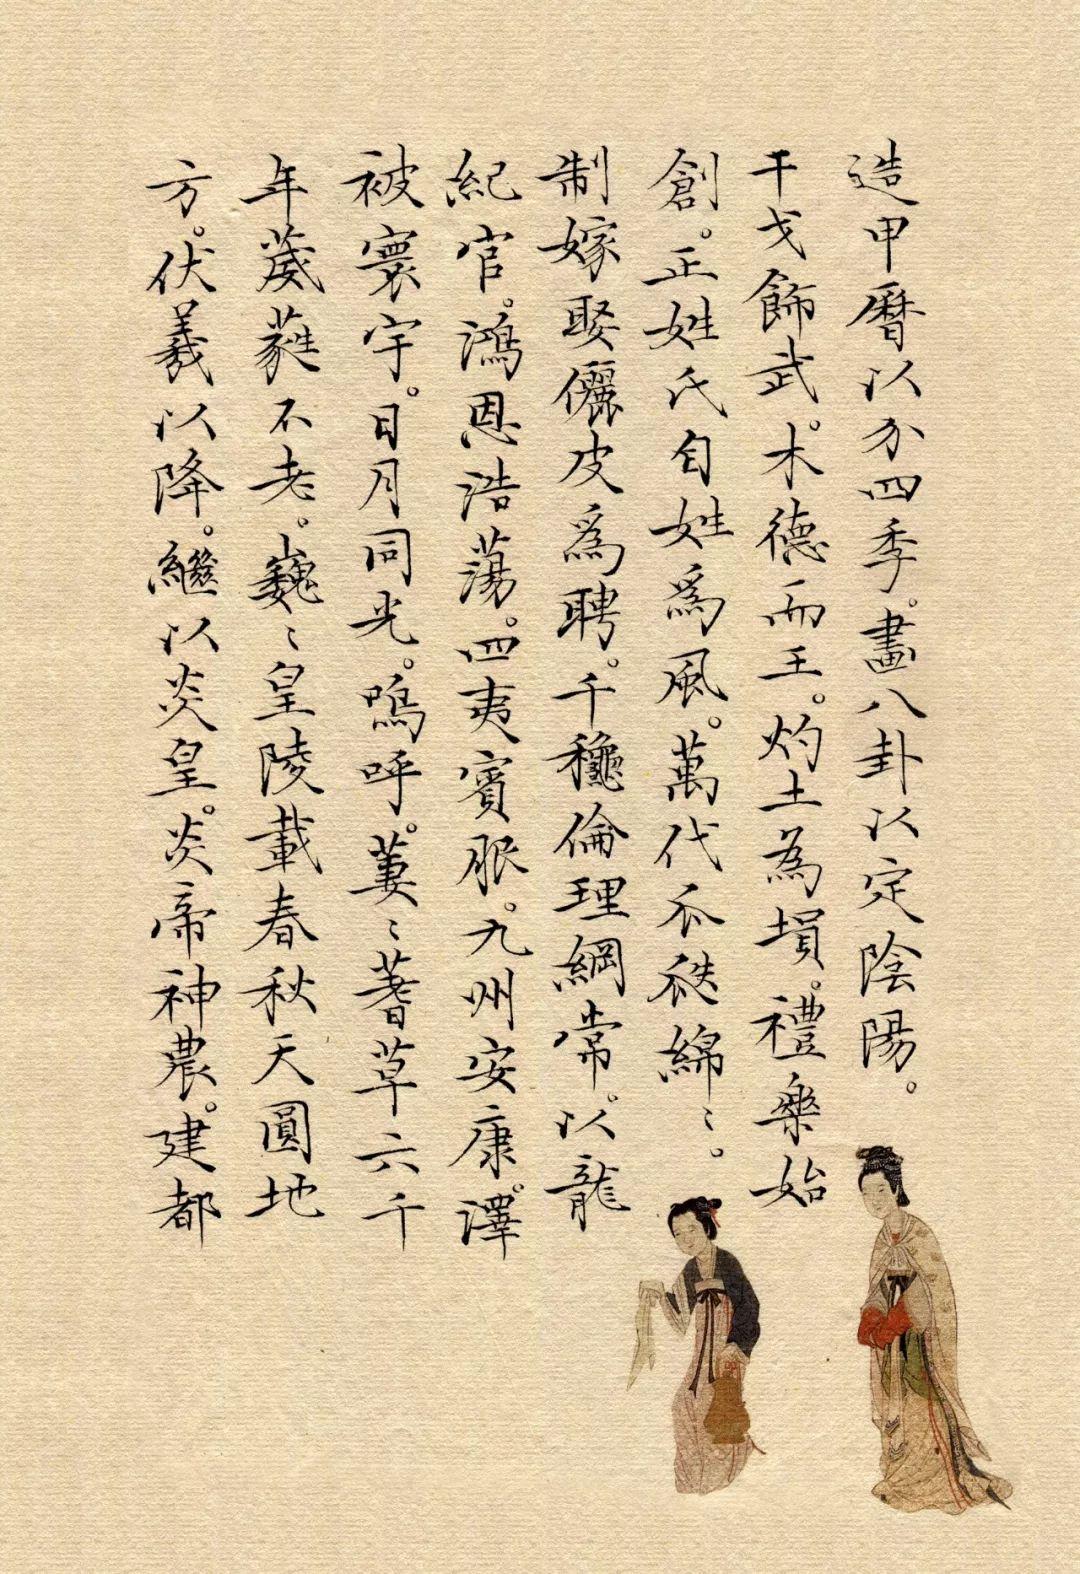 造甲曆以分四季。畫八卦以定陰陽。
干戈飾武。木德而王。灼土為塤。禮樂始
創。正姓氏自姓爲風。萬代瓜瓞綿〻。
制嫁娶儷皮爲聘。千龝倫理綱常。以龍
紀官。鴻恩浩蕩。四夷賓服。九州安康。澤
被寰宇。日月同光。嗚呼。萋〻蓍草六千
年葳蕤不老。巍〻皇陵載春秋天圓地
方。伏羲以降。繼以炎皇。炎帝神農。建都